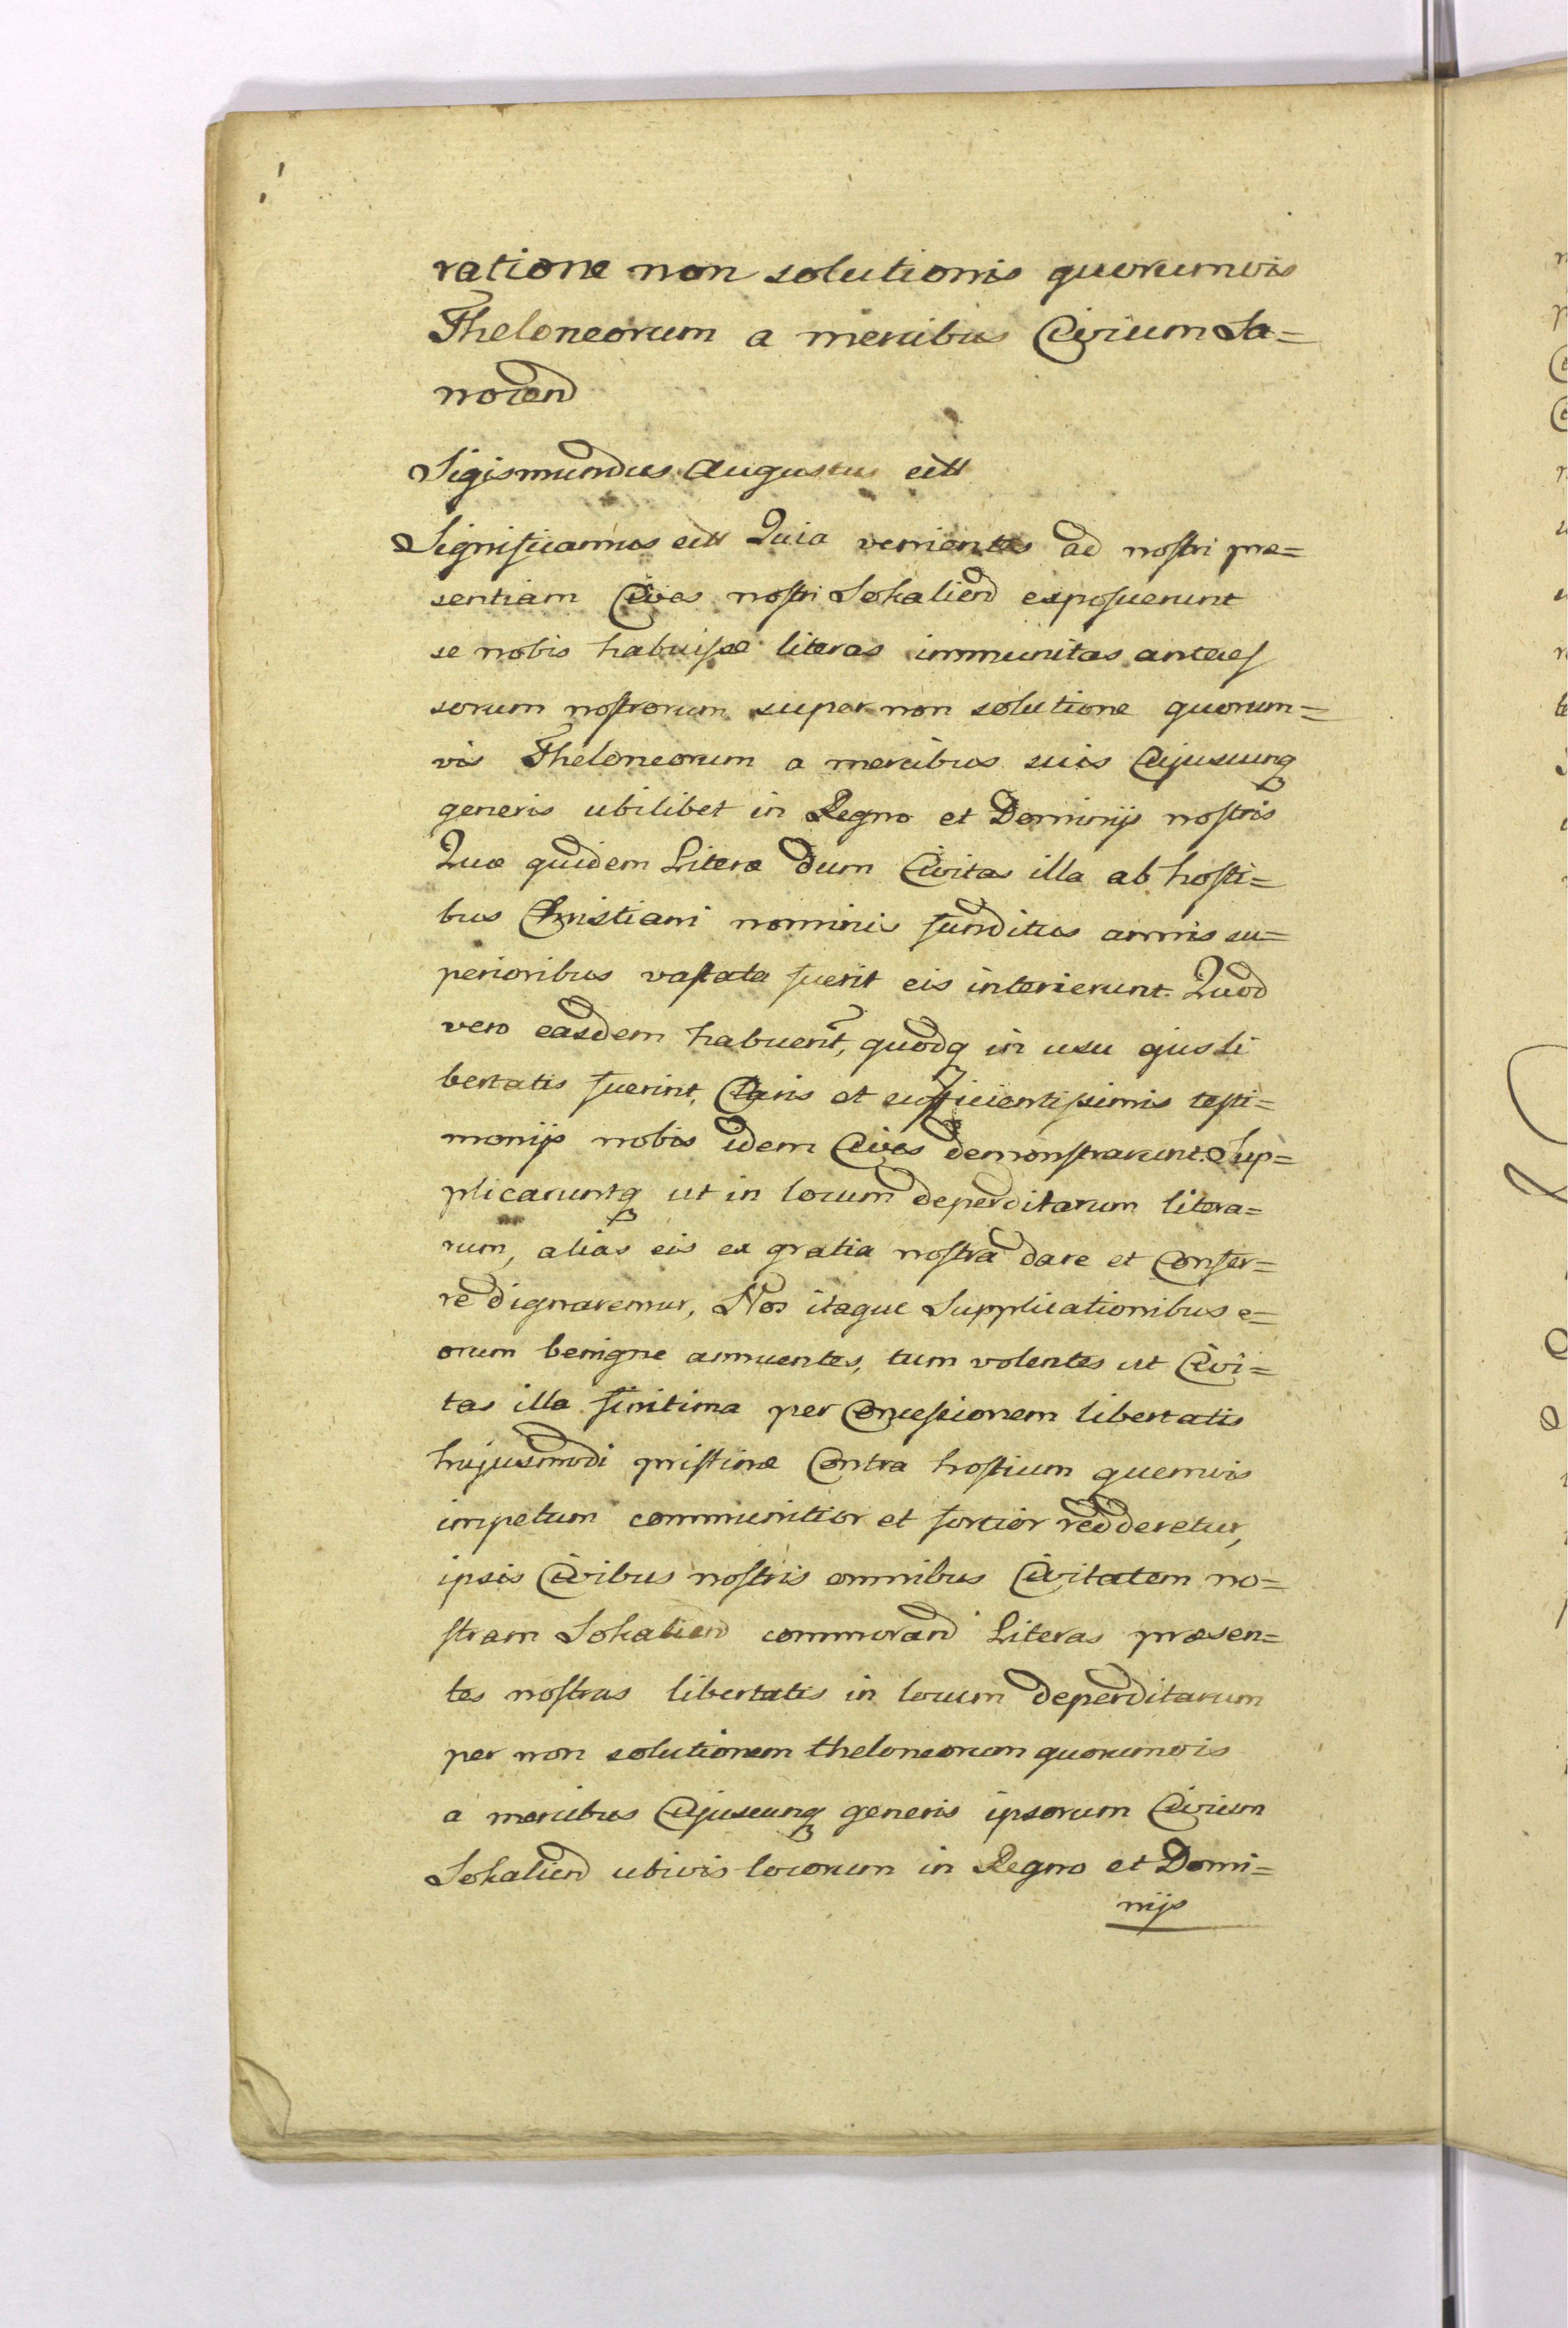 ratione non solutionis quorumvis
Theloneorum a mercibus Civium Sa=
nocend
Sigismundus Augustus ett
Significamus ett Quia venientes ad nostri præ=
sentiam Cives nostri Sokaliend exposuerunt
se nobis habuisse literas immunitas anteces
sorum nostrorum super non solutione quorum=
vis Theloneorum a mercibus suis Cujuscunq
generis ubilibet in Regno et Dominijs nostris
Quæ quidem Literæ dum Civitas illa ab hosti=
bus Christiani nominis funditus annis su=
perioribus vastata fuerit eis interierunt. Quod
vero easdem habuerit, quodq in usu ejus li
bertatis fuerint, Claris et sufficientissimis testi=
monijs nobis idem Cives demonstrarunt. Sup=
plicaruntq ut in locum deperditarum litera=
rum, alias eis ex gratia nostra dare et Confer=
re dignaremur, Nos itaque Supplicationibus e=
orum benigne annuentes, tum volentes ut Civi=
tas illa finitima per Concessionem libertatis
hujusmodi pristinæ Contra hostium quemvis
impetum communitior et fortior redderetur,
ipsis Civibus nostris omnibus Civitatem no=
stram Sokaliend commorand Literas præsen=
tes nostras libertatis in locum deperditarum
per non solutionem theloneorum quorumvis
a mercibus Cujuscunq generis ipsorum Civium
Sokaliend ubivis locorum in Regno et Domi=
nijs